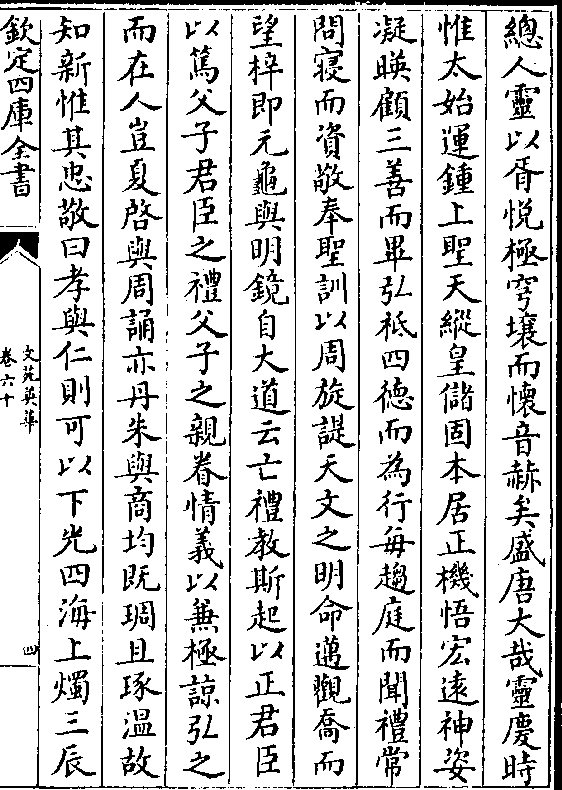 總人靈以胥悦極穹壤而懷音赫矣盛唐大哉靈慶時
惟太始運鍾上聖天縱皇儲固本居正機悟宏遠神姿
凝暎顧三善而畢弘祗四德而為行每趨庭而聞禮常
問寝而資敬奉聖訓以周旋諟天文之明命邁觀喬而
望梓即元龜與明鏡自大道云亡禮教斯起以正君臣
以篤父子君臣之禮父子之親眷情義以兼極諒弘之
而在人豈夏啓與周誦亦丹朱與商均既琱且琢温故
知新惟其忠敬曰孝與仁則可以下光四海上燭三辰
欽定四庫全書
文苑英華
卷六十
四